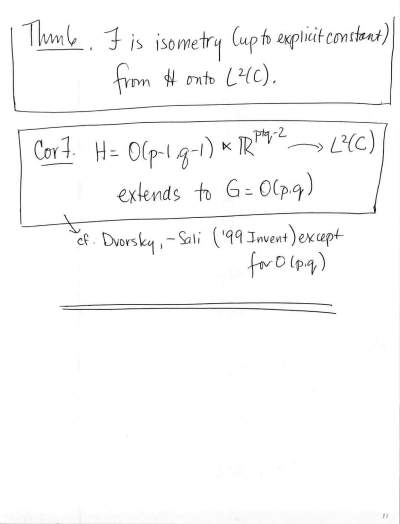 Thm 6. F is isometry (up to explicit constant)
from H onto L²(C).
Cor 7. H = O(p-1, q-1) ⋉ ℝ^{p+q-2} ⟶ L²(C)
extends to G = O(p,q)
cf. Dvorsky, -Sahi ('99 Invent) except
for O(p,q)